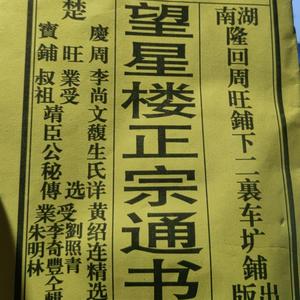 湖南
隆回周旺鋪下二裏车圹鋪
出版
望星楼正宗通书
楚
慶周李尚文馥生氏详黄绍连精选
旺業受选受劉照青
寶鋪叔祖靖臣公秘傳業李奇豐仝輯
朱明林